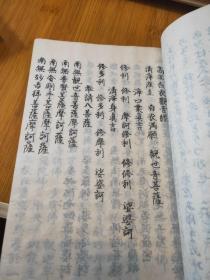 高王白衣觀音經
清淨座上 白衣滿願 觀世音菩薩
淨口業真言
修利 修利 摩訶修利 修修利 娑婆訶
清淨身真言
修多利 修多利 修摩利 娑婆訶
奉請八菩薩
南無觀世音菩薩摩訶薩
南無普賢菩薩摩訶薩
南無金剛手菩薩摩訶薩
南無妙吉祥菩薩摩訶薩